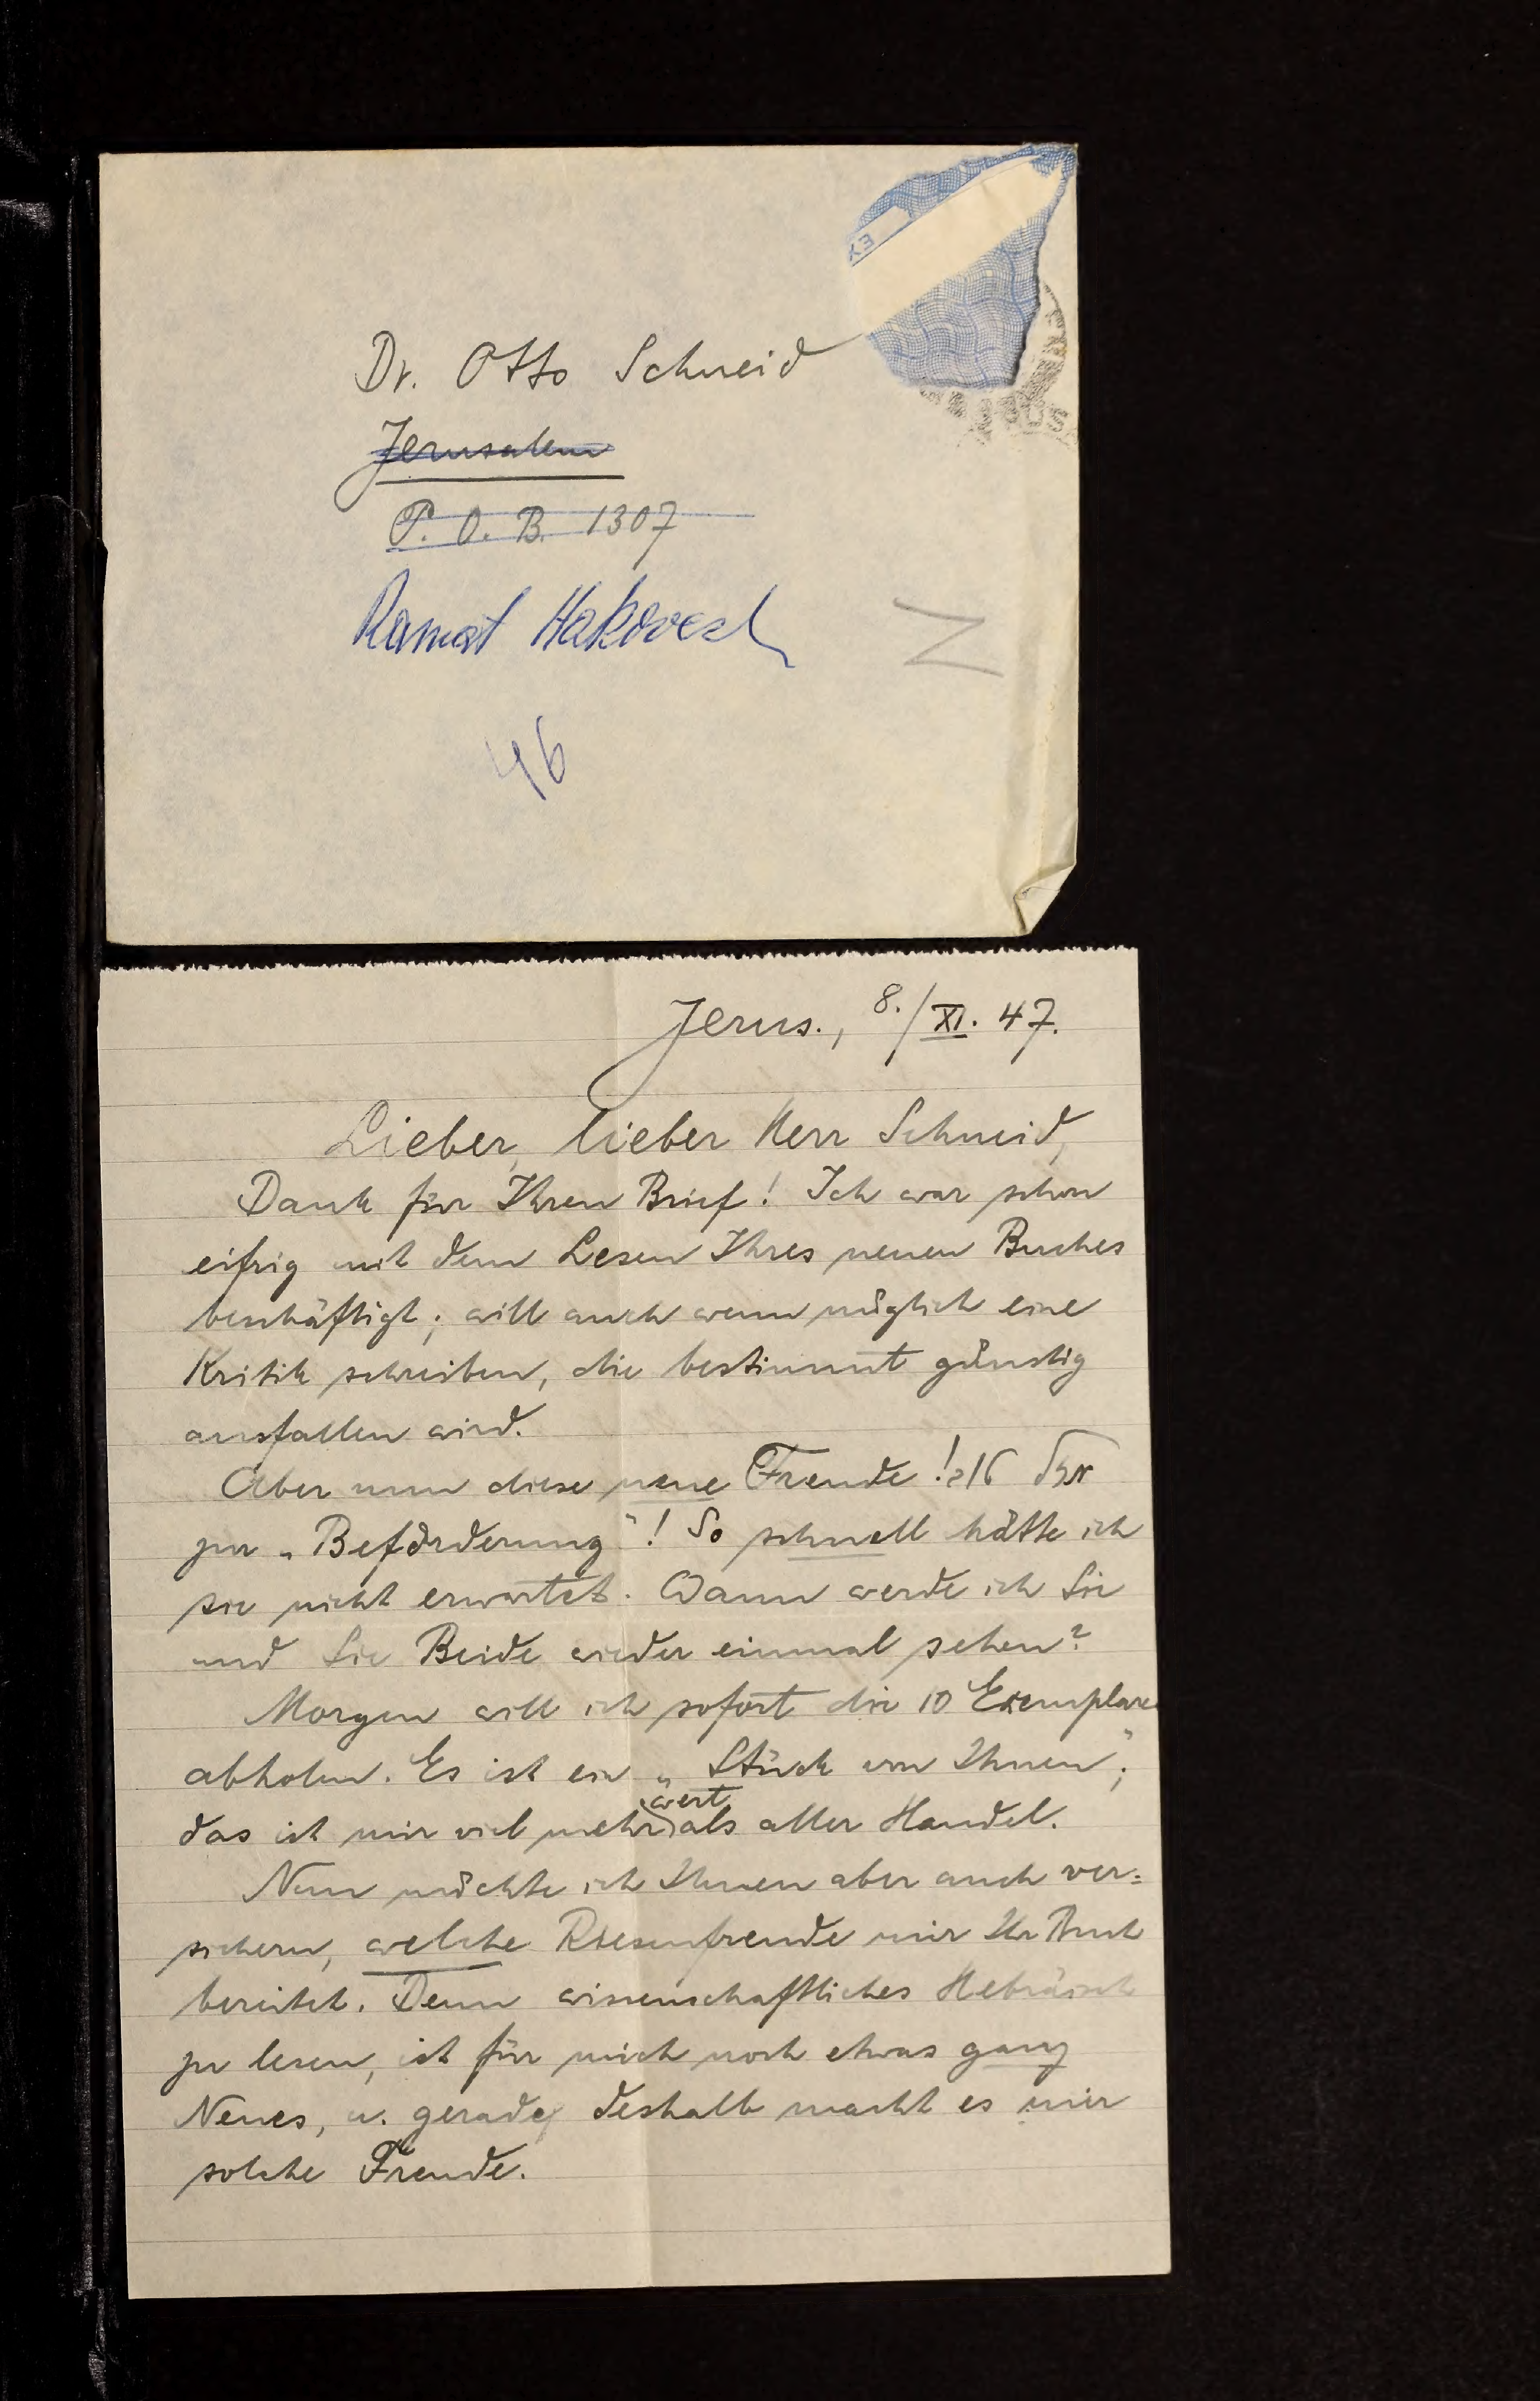 Dr. Otto Schneid
Jerusalem
P. O. B. 1307
Ramat Hakovesch
46
Jerus., 8./XI. 47.
Lieber, lieber Herr Schneid,
Dank für Ihren Brief! Ich war schon
eifrig mit dem Lesen Ihres neuen Buches
beschäftigt; will auch wenn möglich eine
Kritik schreiben, die bestimmt günstig
ausfallen wird.
Aber nun diese neue Freude! מזל טוב
zur „Beförderung"! So schnell hätte ich
sie nicht erwartet. Wann werde ich Sie
und Sie Beide wieder einmal sehen?
Morgen will ich sofort die 10 Exemplare
abholen. Es ist ein „Stück von Ihnen";
das ist mir viel mehr wert als aller Handel.
Nun möchte ich Ihnen aber auch ver=
sichern, welche Riesenfreude mir Ihr Buch
bereitet. Denn wissenschaftliches Hebräisch
zu lesen, ist für mich noch etwas ganz
Neues, u. gerade deshalb macht es mir
solche Freude.